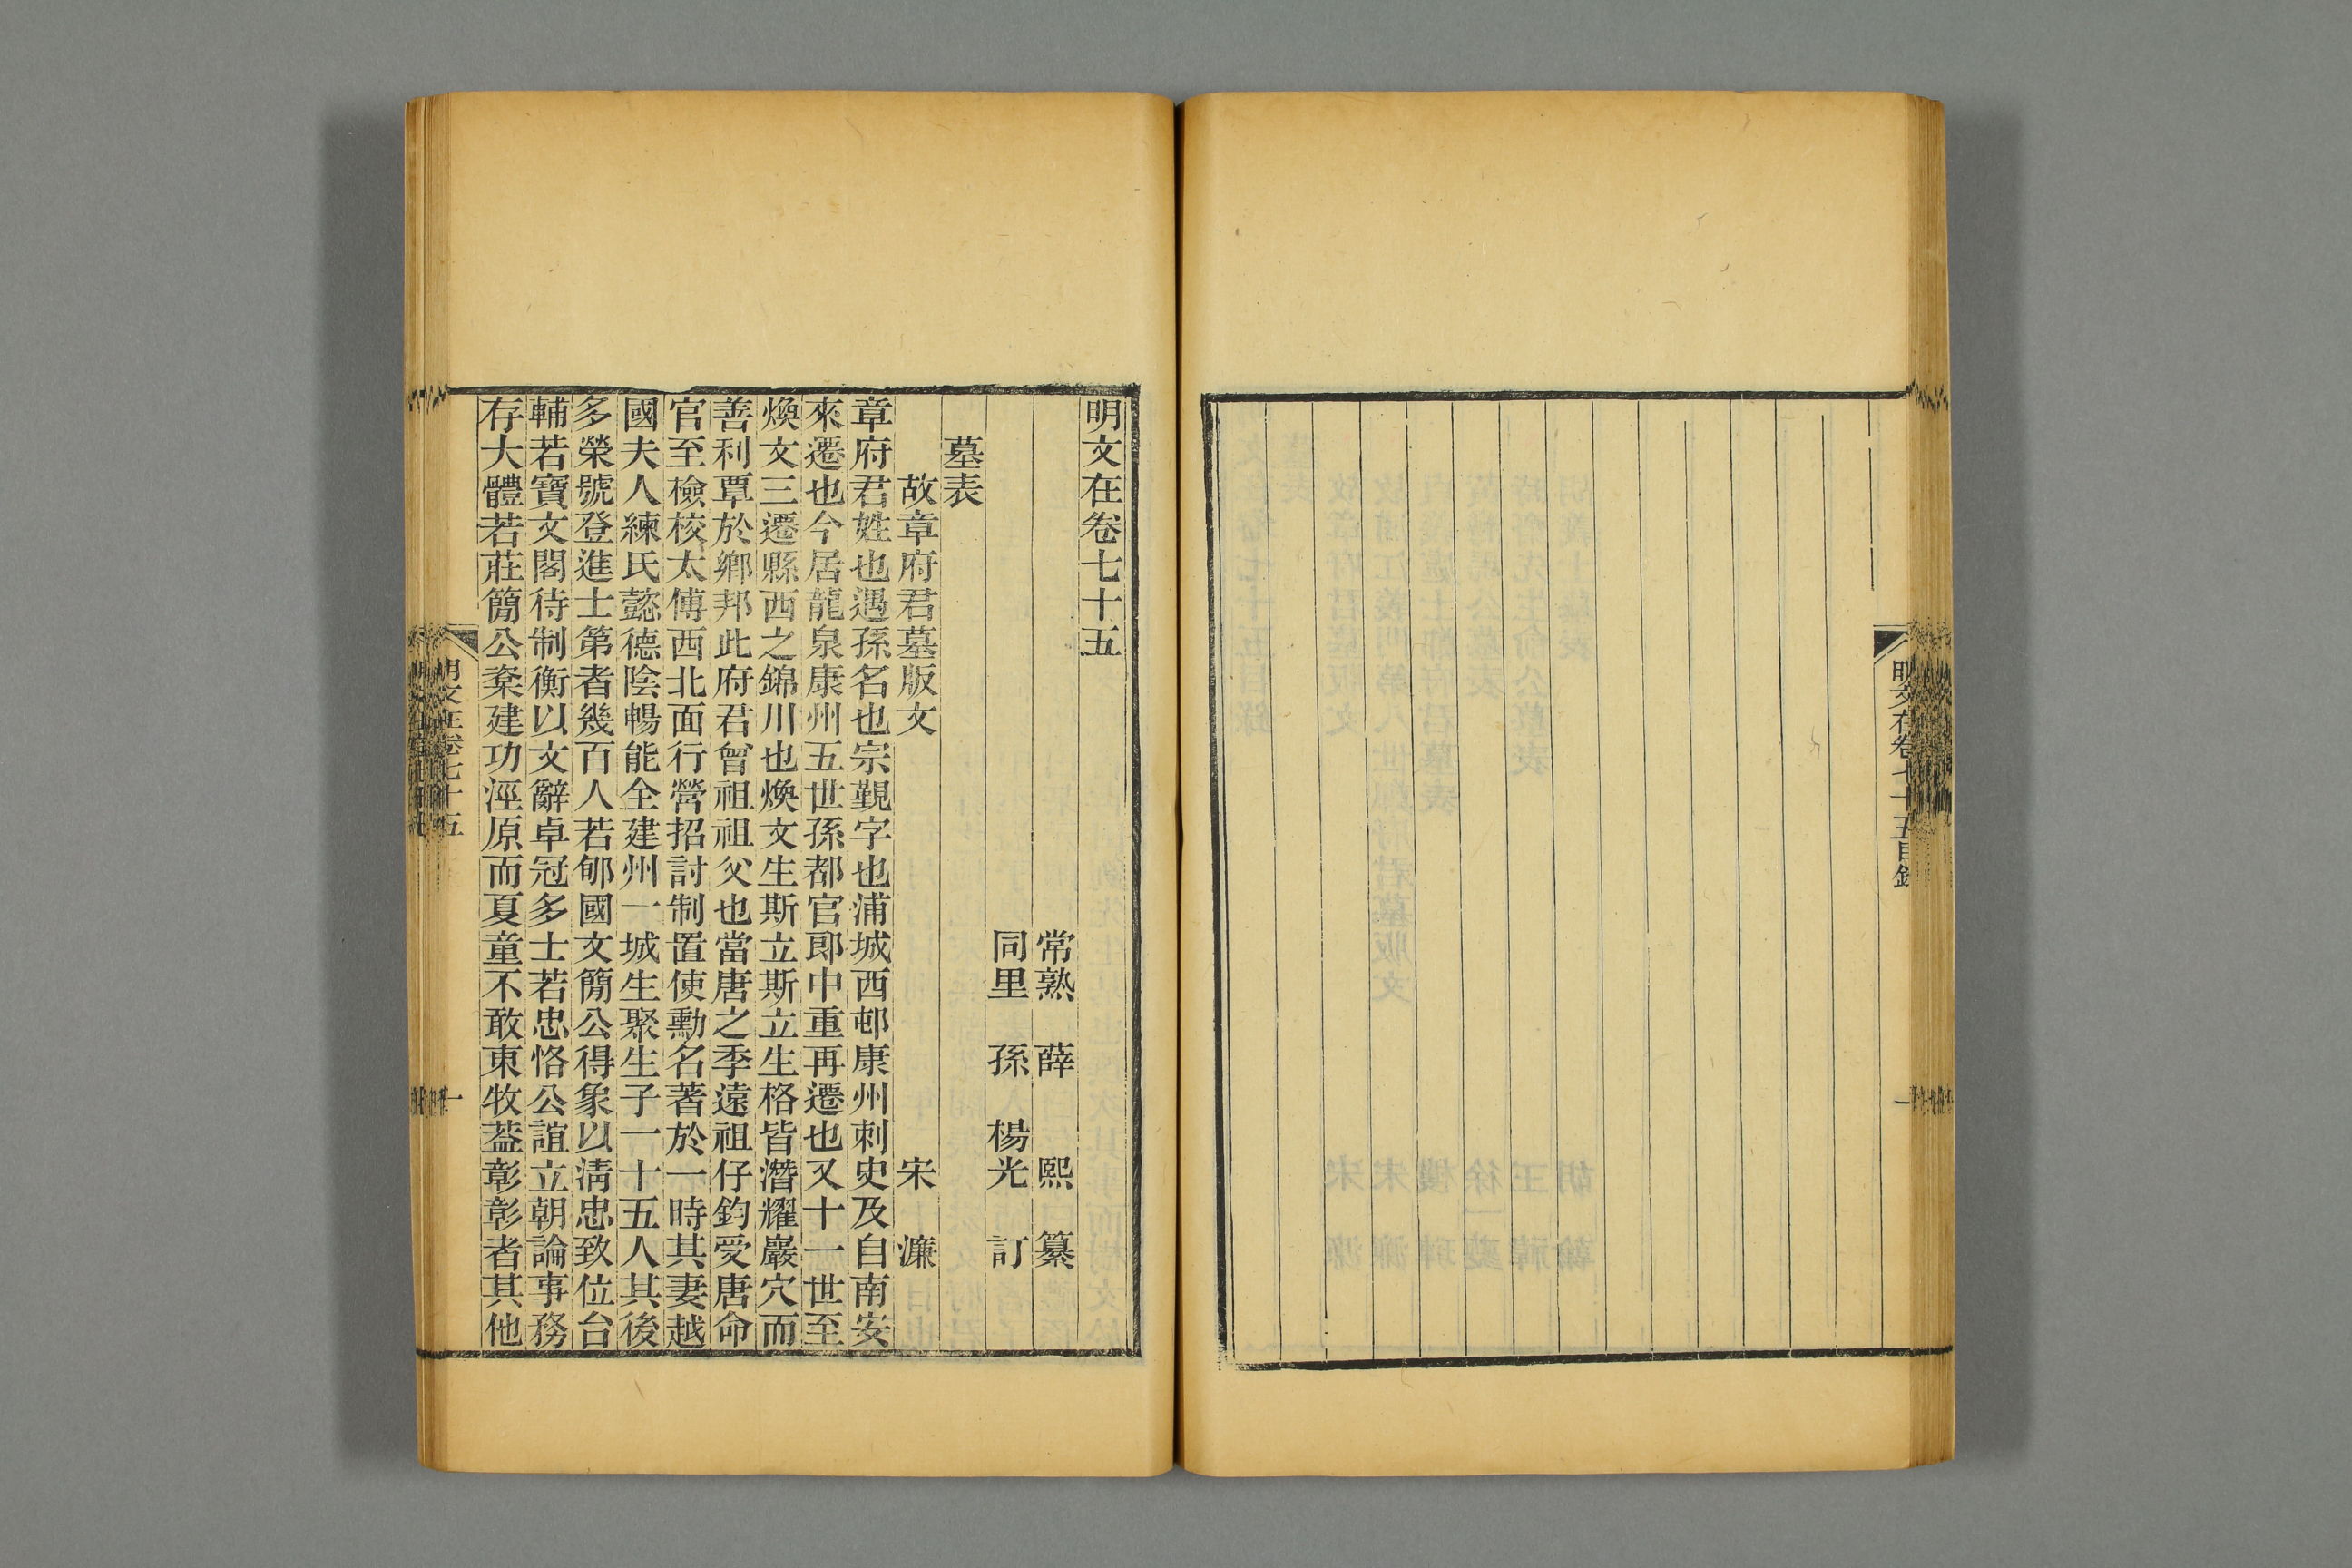 明文在卷七十五目錄
一
明文在卷七十五
常熟 薛 熙 纂
同里 孫 楊光 訂
墓表
故章府君墓版文 宋 濂
章府君姓也遇孫名也宗覲字也浦城西邨康州刺史及自南安
來遷也今居龍泉康州五世孫都官郎中重再遷也又十一世至
煥文三遷縣西之錦川也煥文生斯立斯立生格皆潛耀巖穴而
善利覃於鄉邦此府君曾祖祖父也當唐之季遠祖仔鈞受唐命
官至檢校太傅西北面行營招討制置使勳名著於一時其妻越
國夫人練氏懿德陰暢能全建州一城生聚生子一十五人其後
多榮號登進士第者幾百人若郇國文簡公得象以淸忠致位台
輔若寶文閣待制衡以文辭卓冠多士若忠恪公誼立朝論事務
存大體若莊簡公楶建功涇原而夏童不敢東牧葢彰彰者其他
明文在卷七十五
一